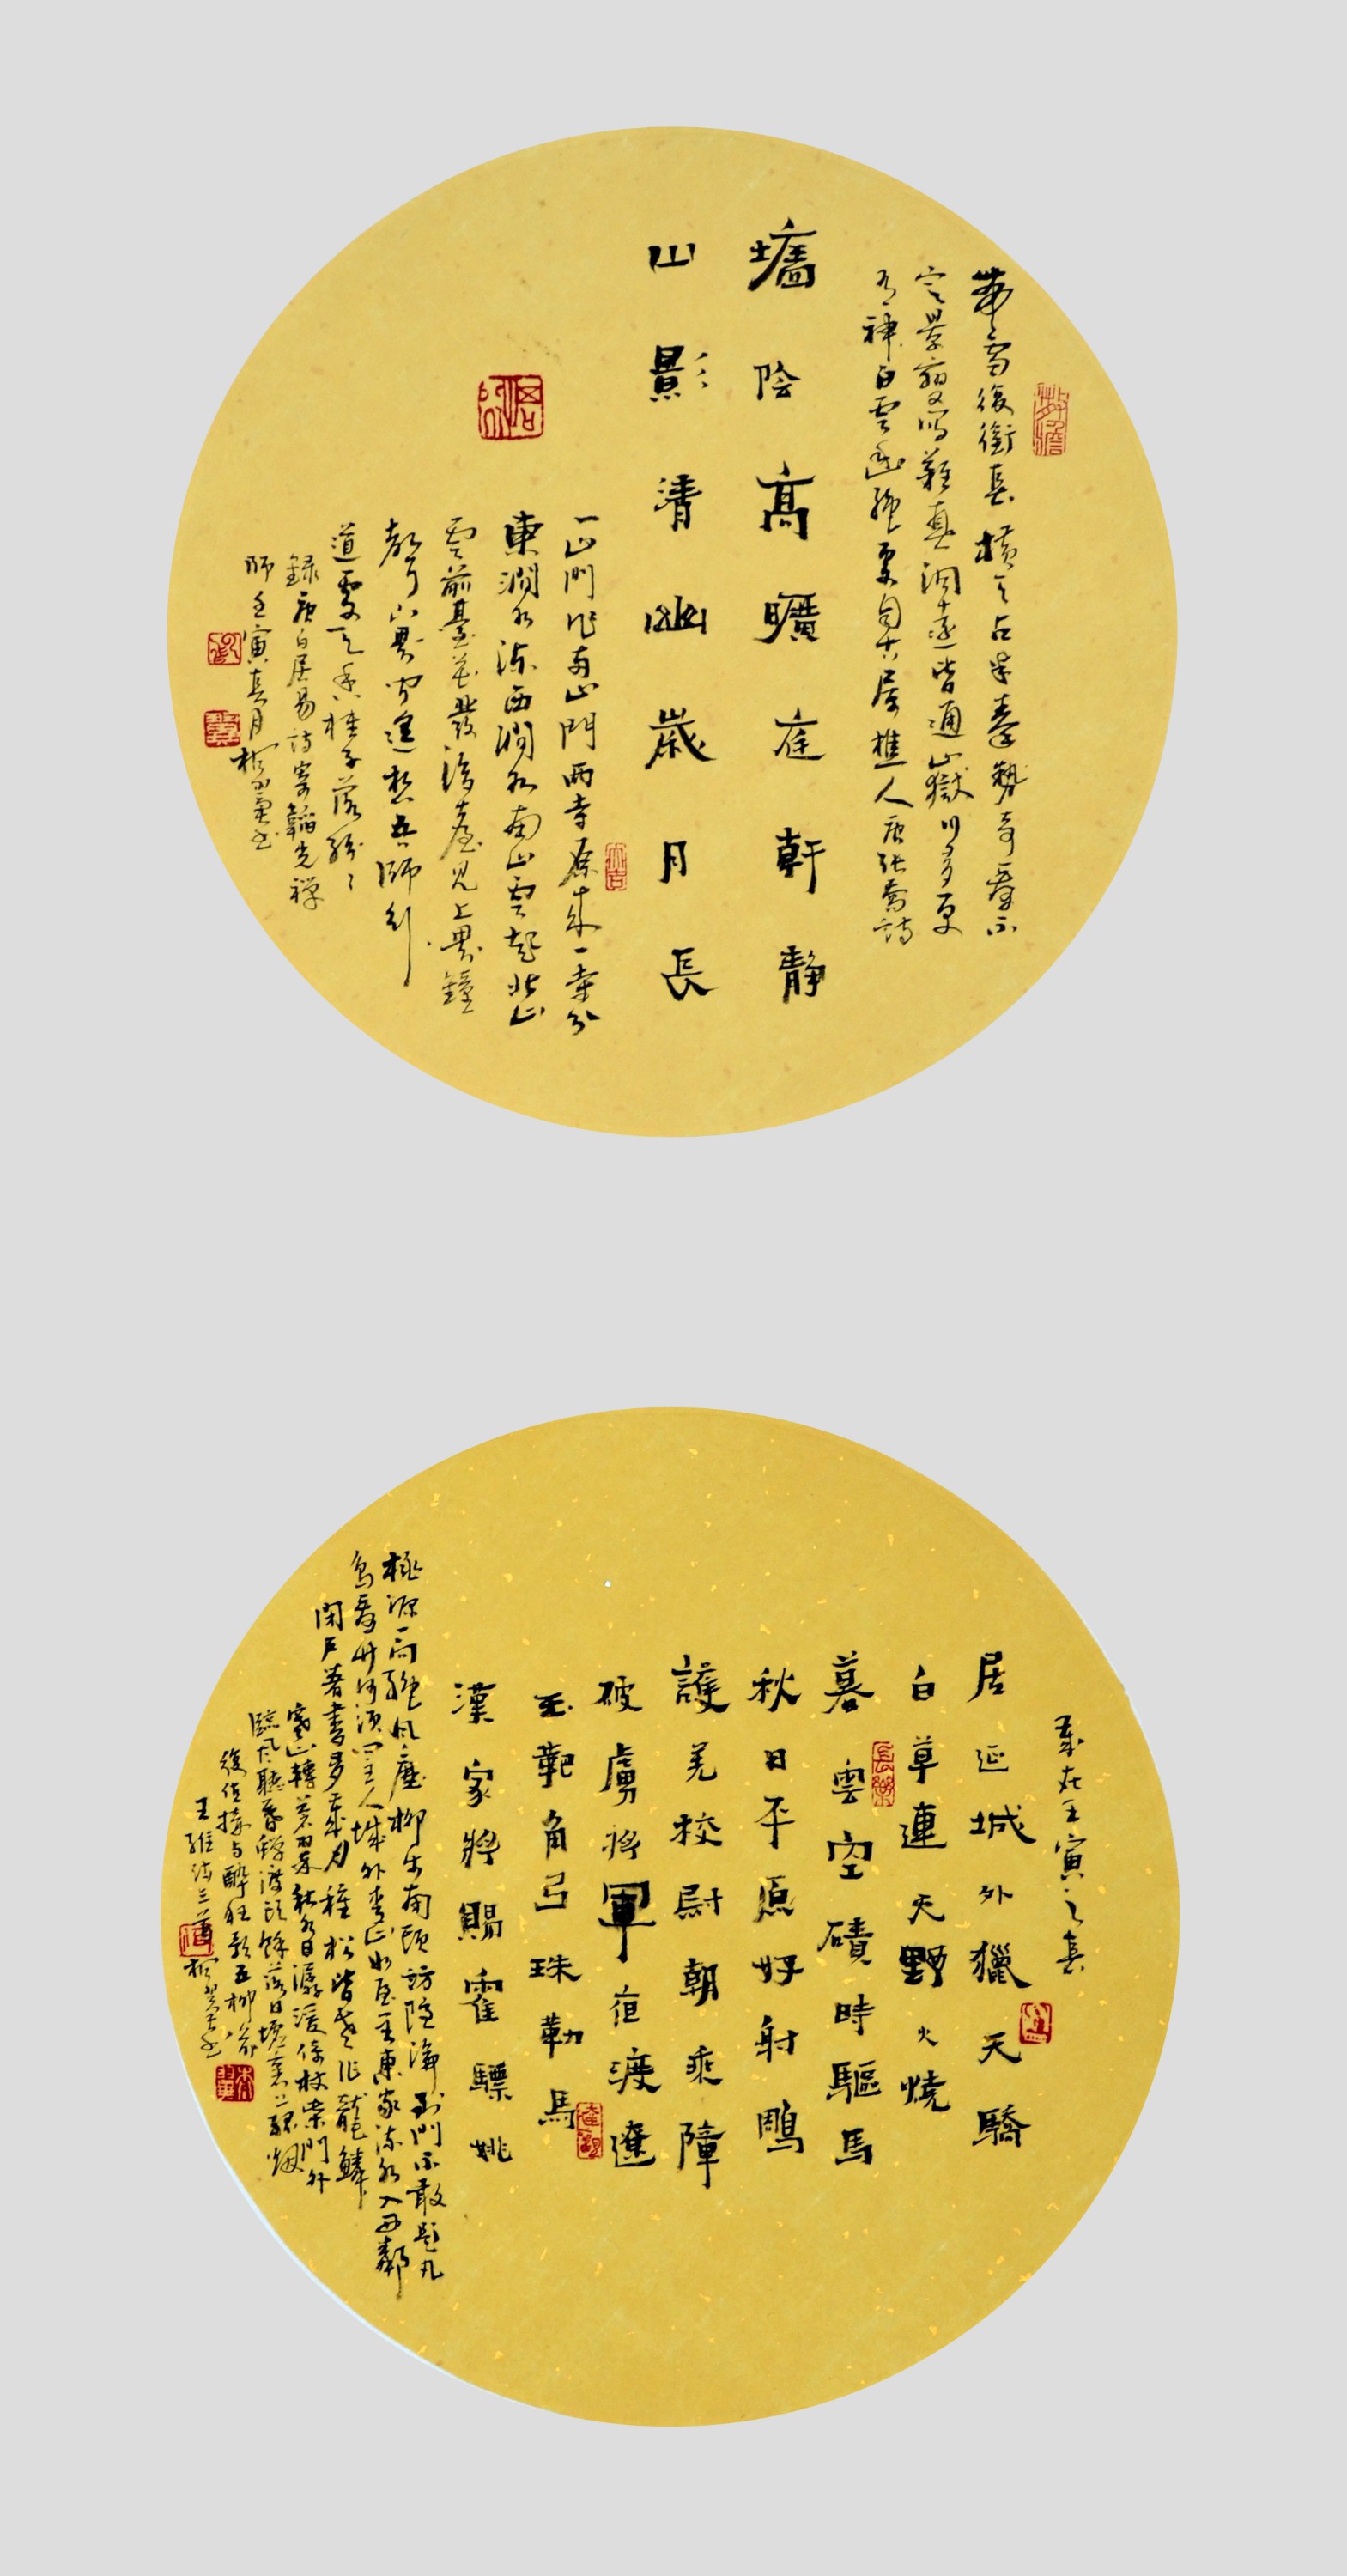 帶雪復銜春橫天占半秦勢奇看不
定景變寫難真洞遠皆通嶽川多更
有神白雲幽絕處自古屬樵人唐張喬詩
墻陰高曠庭軒靜
山影清幽歲月長
一山門作兩山門兩寺原來一寺分
東澗水流西澗水南山雲起北山
雲前臺花發後臺見上界鐘
聲下界聞遙想吾師行
道處天香桂子落紛紛
錄唐白居易詩寄韜光禪
師壬寅春月書
大吉
歲在壬寅之春
居延城外獵天驕
白草連天野火燒
暮雲空磧時驅馬
秋日平原好射鵰
護羌校尉朝乘障
破虜將軍夜渡遼
玉靶角弓珠勒馬
漢家將賜霍驃姚
桃源一向絕風塵柳市南頭訪隱淪到門不敢題凡
鳥看竹何須問主人城外青山如屋里東家流水入西鄰
閉戶著書多歲月種松皆老作龍鱗
寒山轉蒼翠秋水日潺湲倚杖柴門外
臨風聽暮蟬渡頭餘落日墟裏上孤煙
復值接輿醉狂歌五柳前
王維詩三首書
長樂